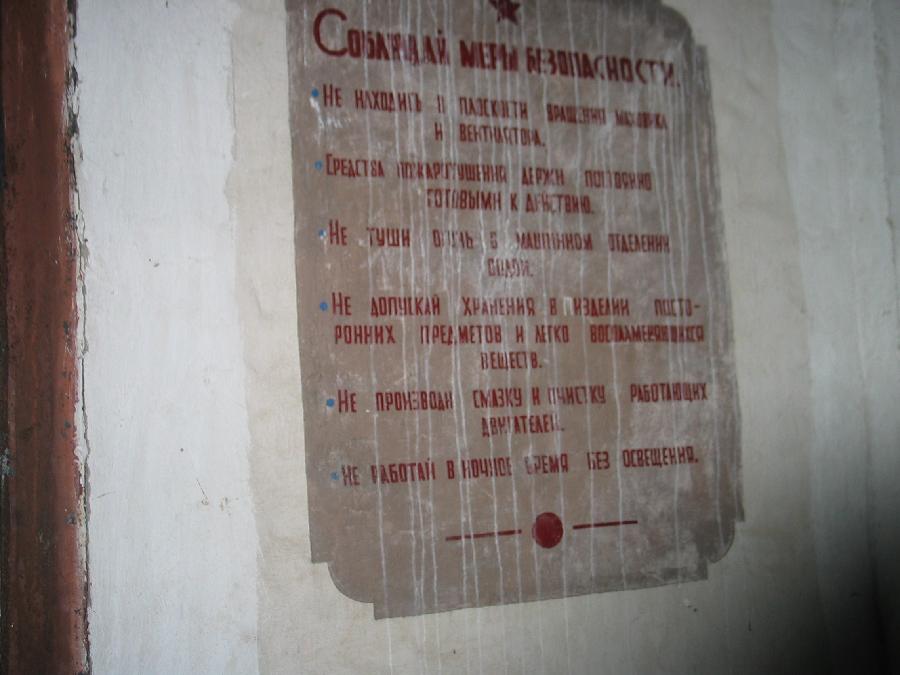 Соблюдай меры безопасности.
Не находись в плоскости вращения маховика
и вентилятора.
Средства пожаротушения держи постоянно
готовыми к действию.
Не туши огонь в машинном отделении
водой.
Не допускай хранения в изделии посто-
ронних предметов и легко воспламеняющихся
веществ.
Не производи смазку и очистку работающих
двигателей.
Не работай в ночное время без освещения.